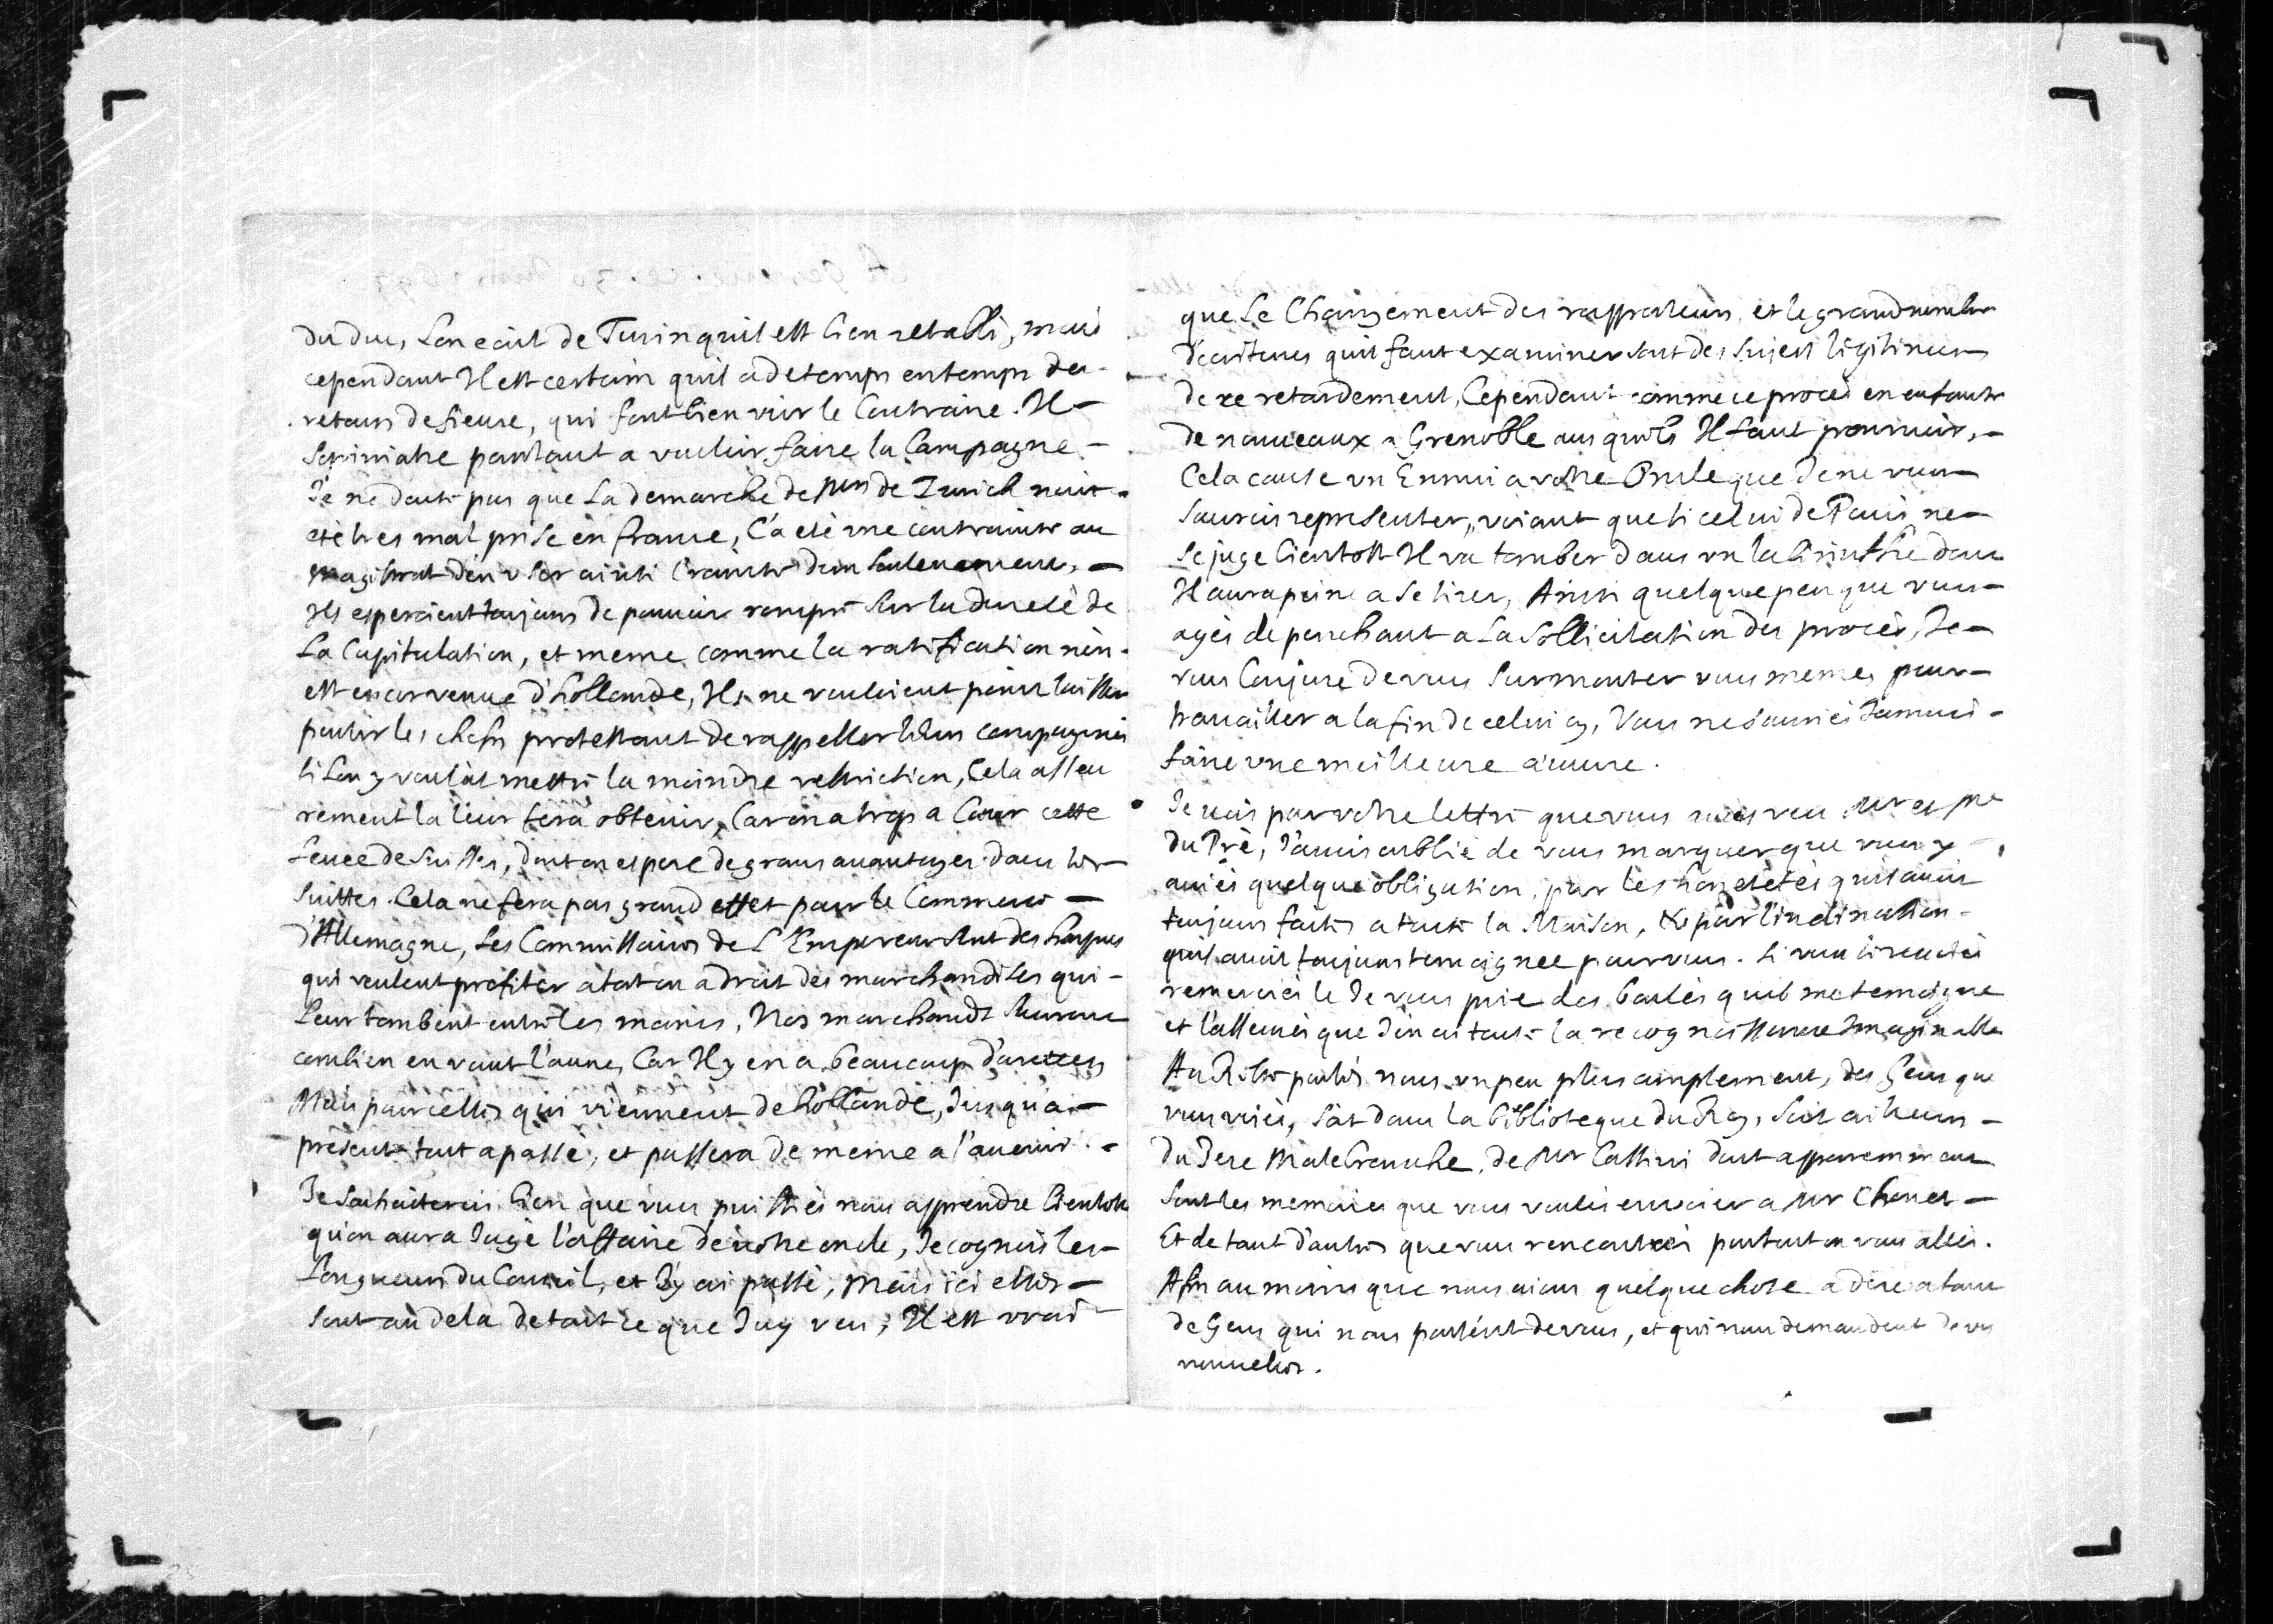 du duc, Lon ecrit de Turin quil est bien retabli, mais
cependant Il est certain quil a de temps en temps des
retours de fieure, qui font bien voir le Contraire. Il
sopiniatre pourtant a vouloir faire la Campagne
Je ne doute pas que La demarche de Mrs de Zurich nait
eté tres mal prise en france, C'a eté une contrainte au
magistrat den vser ainsi crainte d'un soulevement,
Ils esperoient toujours de pouvoir rompre sur la dureté de
La Capitulation, et meme comme la ratification n'en
est encor venue d'hollande, Ils ne vouloient point laisser
partir les chefs protestant de rappeller leurs compagnies
si Lon y vouloit mettre la moindre restriction, Cela asseu
rement la leur fera obtenir, Car on a trop a Cœur cette
levée de Suisses, dont on espere de grans auantages dans les
suittes. Cela ne fera pas grand effet pour le Commerce
d'Allemagne, Les Commissaires de L'Empereur sont des harpies
qui veulent profiter a tort ou a droit des marchandises qui
Leur tombent entre les mains, Nos marchands sauront
combien en vaut l'aune, Car Il y en a beaucoup d'aretées
Mais pour celles qui viennent de hollande, Jusqu'a
present tout a passé, et passera de meme a l'auenir.
Je souhaiterois bien que vous puissiés nous apprendre bientost
qu'on aura Jugé l'affaire de votre oncle, Je cognois les
Longueurs du Conseil, et J'y ai passé, Mais ici elles
sont au dela de tout ce que J'ay veu, Il est vrai
que Le Changement des rapporteurs, et le grand nombre
d'ecritures quil faut examiner sont des sujets legitimes
de ce retardement, Cependant comme ce procès en enfante
de nouveaux a Grenoble ausquels Il faut pourvoir,
Cela cause vn Ennui a votre Oncle que Je ne vous
saurois representer, voiant que si celui de Paris ne
se juge bientost Il va tomber dans vn labirinthe dont
Il aura peine a se tirer, Ainsi quelque peu que vous
ayés de penchant a La Sollicitation des procès, Je
vous Conjure de vous surmonter vous memes pour
travailler a la fin de celui cy, Vous ne sauriés Jamais
faire vne meilleure œuure.
Je vois par votre lettre que vous avés veu Mr et Me
Du Pré, J'avois oublié de vous marquer que vous y
auiés quelque obligation, par les honetetés quil auoit
toujours faites a toute la Maison, & par l'inclination
quil auoit toujours temoignée pour vous. Si vous le
remerciés le Je vous prie des bontés quil me temoigne
et l'asseurés que J'en ai toute la recognoissance Imaginable
Au Reste parlés nous vn peu plus amplement, des Gens que
vous voiés, soit dans la biblioteque du Roy, soit ailleurs
du Pere Malebranche, de Mr Cassini dont apparemment
sont les memoires que vous voulés envoier a Mr Chouet
Et de tant d'autres que vous rencontrés partout ou vous allés.
Afin au moins que nous aions quelque chose a dire a tant
de Gens qui nous parlent de vous, et qui nous demandent de vos
nouvelles.